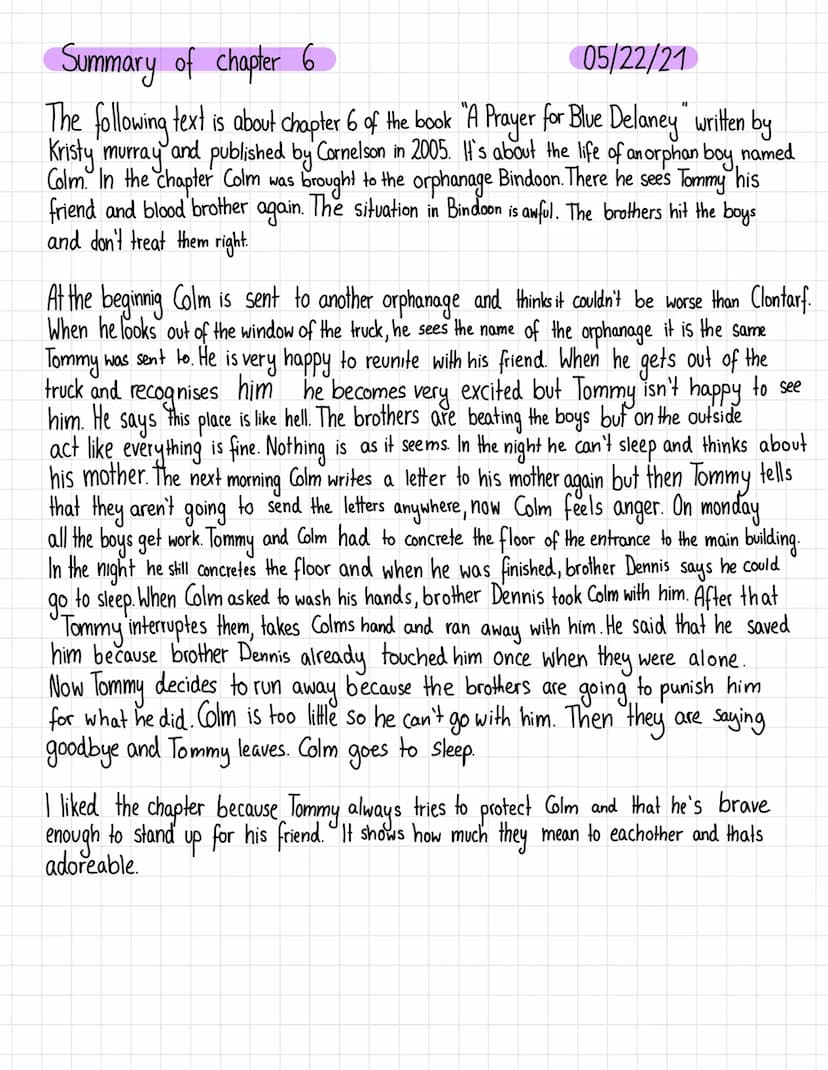 Summary of chapter 6
05/22/21
The following text is about chapter 6 of the book "A Prayer for Blue Delaney" written by
Kristy murray and published by Cornelson in 2005. It's about the life of an orphan boy named
Colm. In the chapter Colm was brought to the orphanage Bindoon. There he sees Tommy his
friend and blood brother again. The situation in Bindoon is awful. The brothers hit the boys
and don't treat them right.
At the beginnig Colm is sent to another orphanage and thinks it couldn't be worse than Clontarf.
When he looks out of the window of the truck, he sees the name of the orphanage it is the same
Tommy was sent to. He is very happy to reunite with his friend. When he gets out of the
truck and recognises him he becomes very excited but Tommy isn't happy to see
him. He says this place is like hell. The brothers are beating the boys but on the outside
act like everything is fine. Nothing is as it seems. In the night he can't sleep and thinks about
his mother. The next morning Colm writes a letter to his mother again but then Tommy tells
that they aren't going to send the letters anywhere, now Colm feels anger. On monday
all the boys get work. Tommy and Colm had to concrete the floor of the entrance to the main building.
In the night he still concretes the floor and when he was finished, brother Dennis says he could
go to sleep. When Colm asked to wash his hands, brother Dennis took Colm with him. After that
Tommy interruptes them, takes Colms hand and ran away with him. He said that he saved
him because brother Dennis already touched him once when they were alone.
Now Tommy decides to run away because the brothers are going to punish him
for what he did. Colm is too little so he can't go with him. Then they are saying
goodbye and Tommy leaves. Colm goes to sleep.
I liked the chapter because Tommy always tries to protect Colm and that he's brave
enough to stand up for his friend. It shows how much they mean to eachother and thats
adoreable.